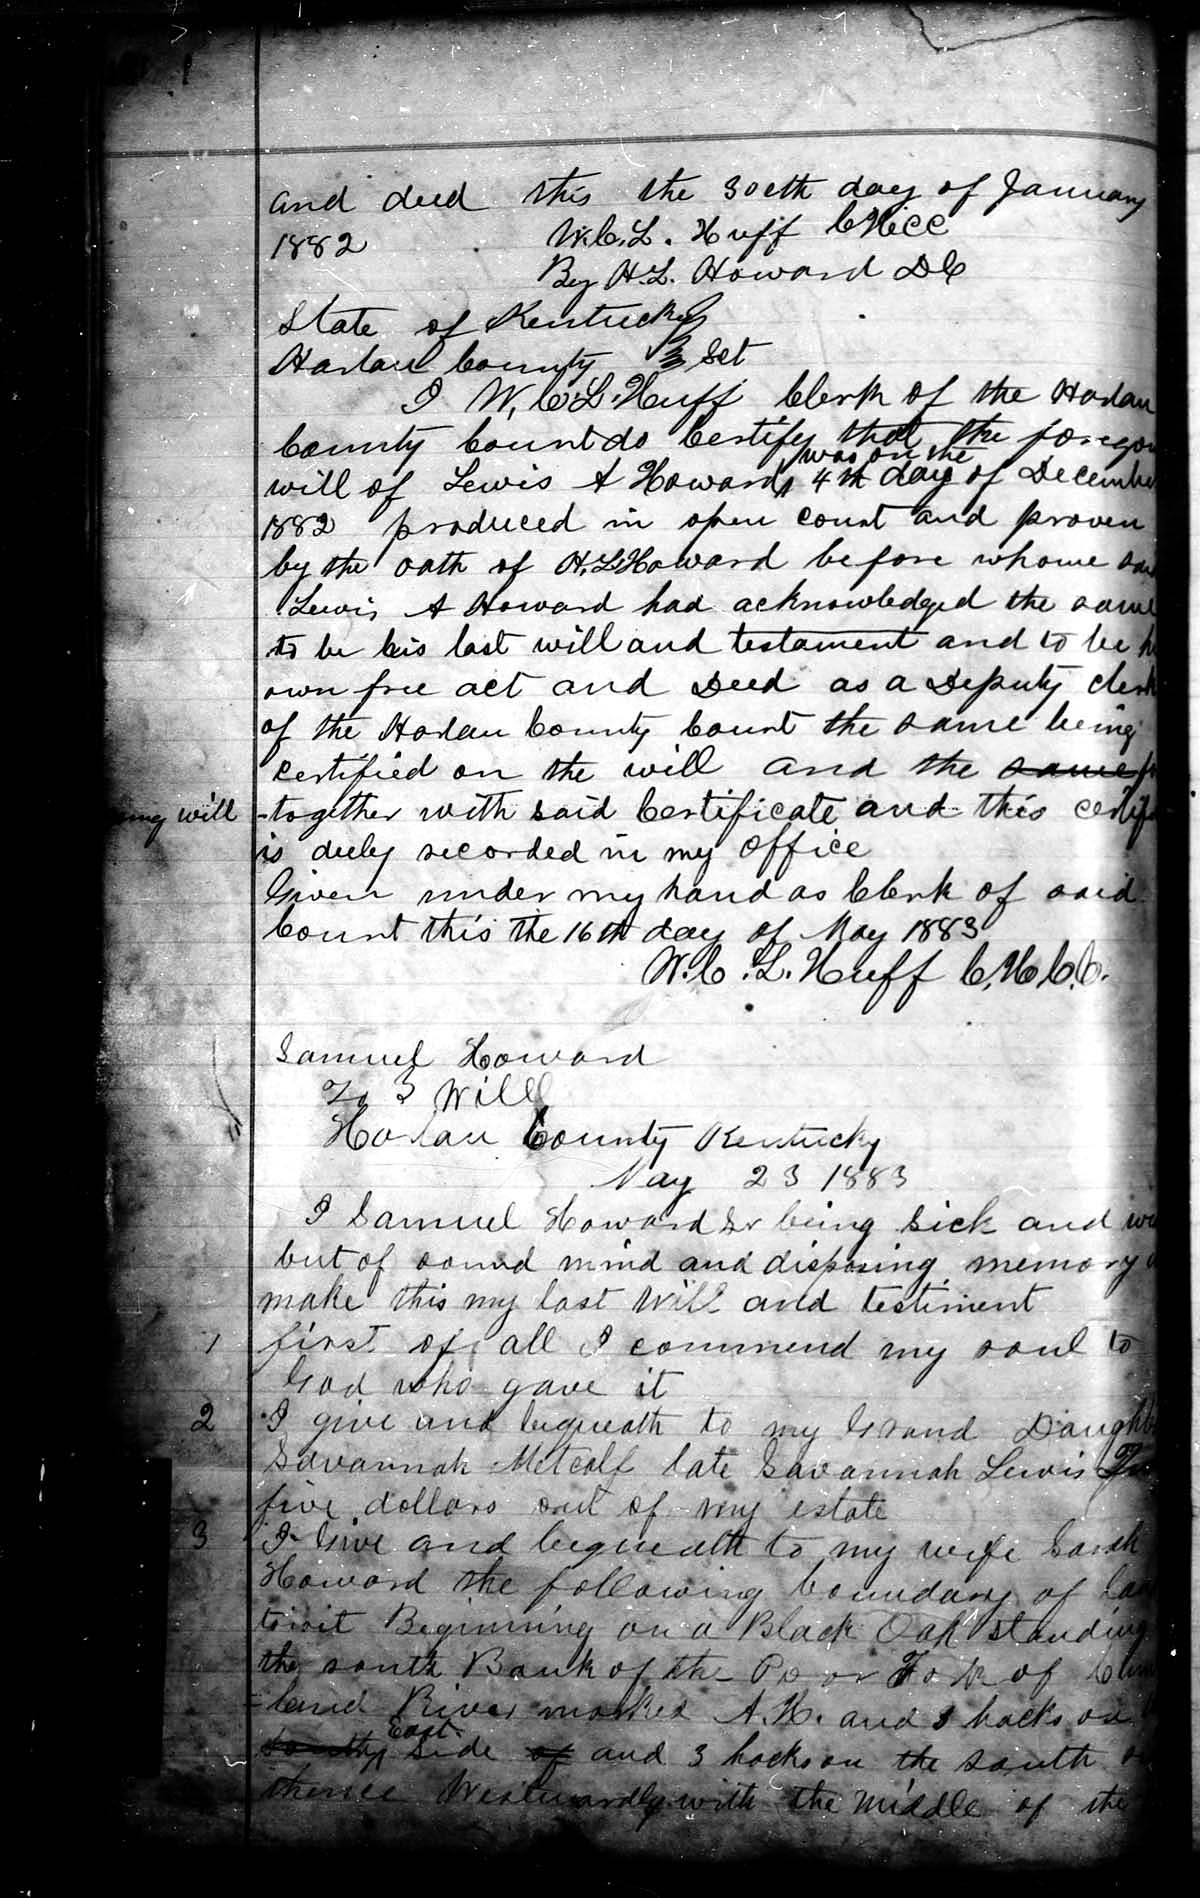 and deed this the 30eth day of January
1882 W.C.L. Huff CHCC
By H.L. Howard DC
State of Kentucky
Harlan County Sct
I W, C.L. Huff Clerk of the Harlan
County Court do Certify that the foregoi
will of Lewis A Howard was on the 4th day of December
1882 produced in open court and proven
by the oath of H,L Howard before whome sai
Lewis A Howard had acknowledged the same
to be his last will and testament and to be h
own free act and Deed as a Deputy clerk
of the Harlan County Court the same being
certified on the will and the same
ing will
together with said Certificate and this certifi
is duly recorded in my office
Given under my hand as Clerk of said
Court this the 16th day of May 1883
W.C.L. Huff C.H.C.C.
Samuel Howard
To Will
Harlan County Kentucky
May 23 1883
I Samuel Howard Sr being sick and we
but of sound mind and disposing memory
make this my last Will and testiment
1 first of all I commend my soul to
God who gave it
2 I give and bequeath to my Grand Daught
Savannah Metcalf late Savannah Lewis
five dollars out of my estate
3 I Give and bequeath to my wife Sarah
Howard the following boundary of lan
towit Beginning on a Black Oak standing
the south Bank of the Poor Fork of Cum
land River marked A.H. and 3 hacks on
south East side of and 3 hacks on the south
thence Westwardly with the middle of the